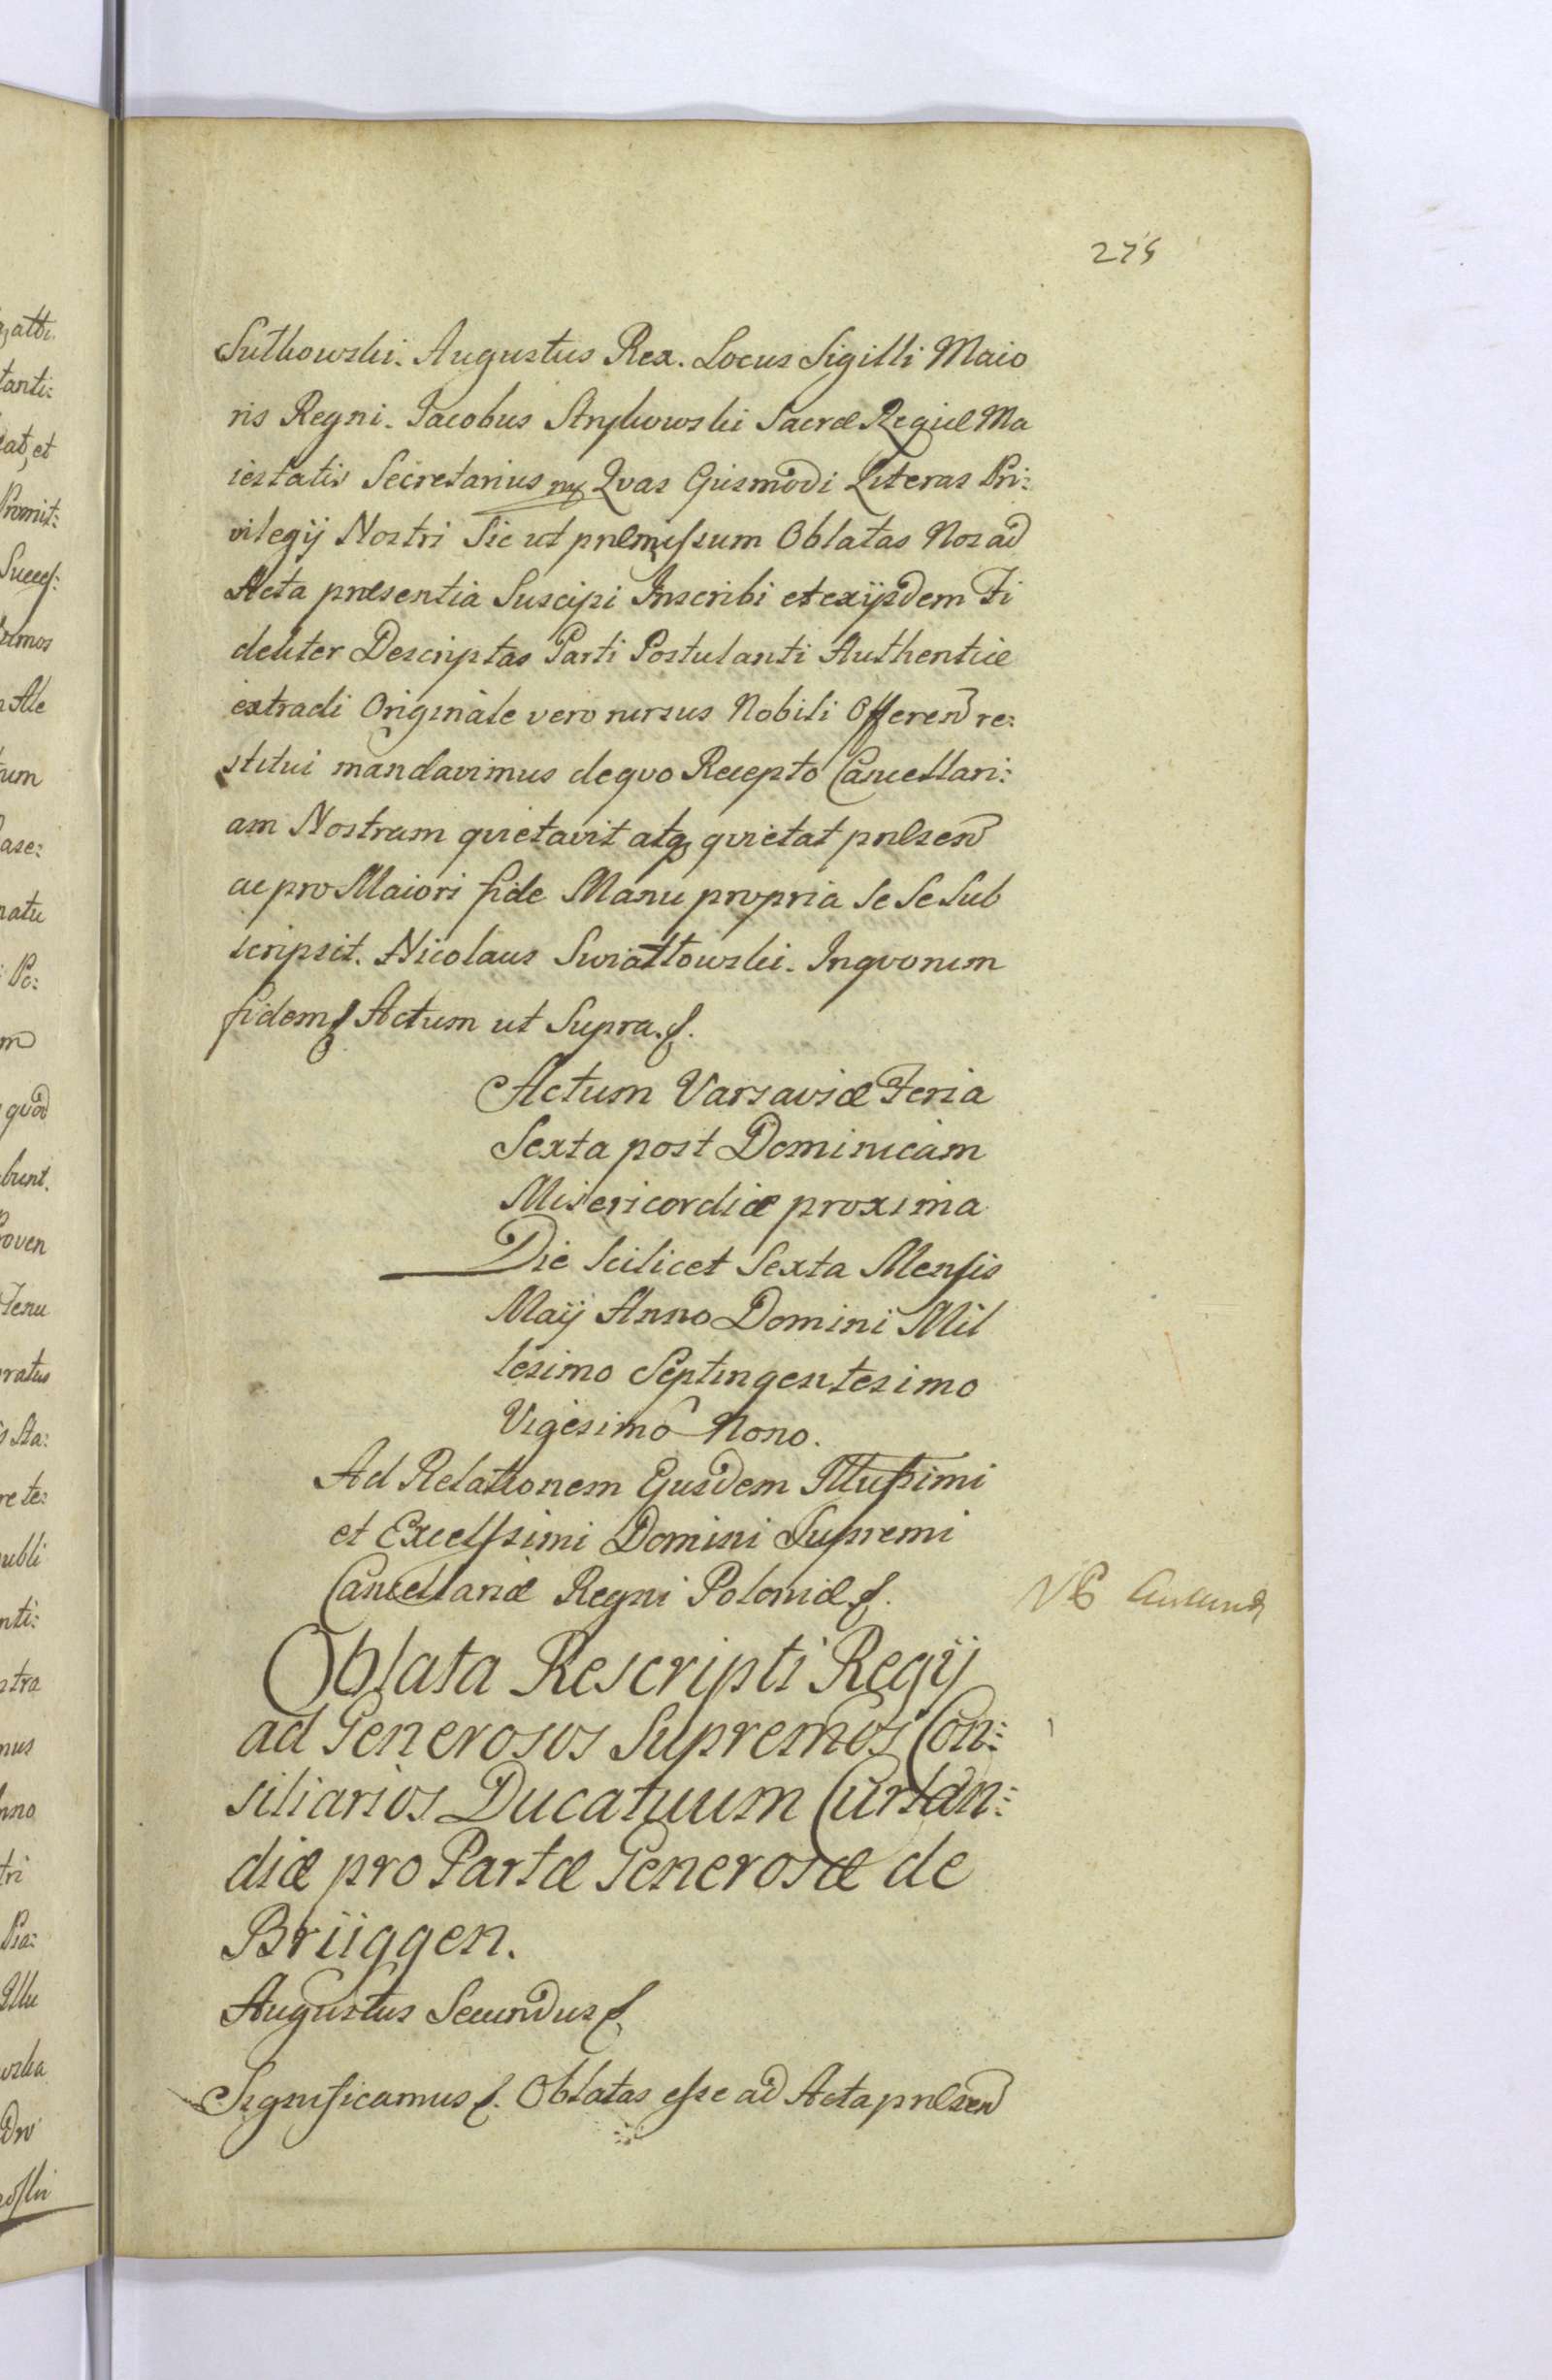 275
Sutkowski. Augustus Rex. Locus Sigilli Maio
ris Regni. Jacobus Strykowski Sacræ Regiæ Ma
iestatis Secretarius Qvas Ejusmodi Literas Pri:
vilegij Nostri Sic ut præmissum Oblatas Nos ad
Acta præsentia Suscipi Inscribi et ex ijsdem Fi
deliter Descriptas Parti Postulanti Authentice
extradi Originale vero rursus Nobili Offeren re:
stitui mandavimus de qvo Recepto Cancellari:
am Nostram qvietavit atq qvietat præsen
ac pro Maiori fide Manu propria Se Se Sub
scripsit. Nicolaus Swiattowski. In qvorum
fidem Actum ut Supra.
Actum Varsaviæ Feria
Sexta post Dominicam
Misericordiæ proxima
Die Scilicet Sexta Mensis
Maij Anno Domini Mil
lesimo Septingentesimo
Vigesimo Nono.
Ad Relationem Ejusdem Illussimi
et Excellssimi Domini Supremi
Cancellariæ Regni Poloniæ
NB
Oblata Rescripti Regij
ad Generosos Supremos Con:
siliarios Ducatuum Curlan:
diæ pro Partæ Generosæ de
Brüggen.
Augustus Secundus
Significamus Oblatas esse ad Acta præsen